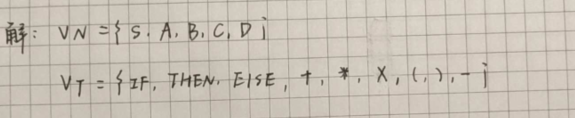 解: VN = { S. A, B, C, D }
VT = { IF, THEN. ElSE, +, *, X, (, ), - }